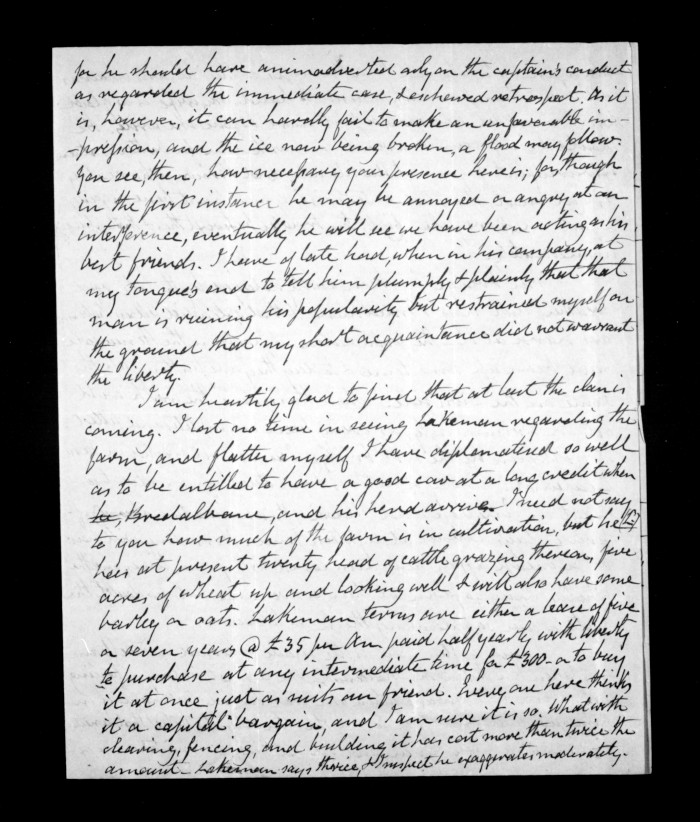 for he should have animadverted only on the captain's conduct
as regarded the immediate case, & eschewed retrospect. As it
is, however, it can hardly fail to make an unfavorable im-
-pression, and the ice now being broken, a flood may follow.
You see, then, how necessary your presence here is; for, though
in the first instance he may be annoyed or angry at our
interference, eventually he will see we have been acting as his
best friends. I have of late had, when in his company, at
my tongue's end to tell him plumply & plainly that that
man is ruining his popularity but restrained myself on
the ground that my short acquaintance did not warrant
the liberty.
I am heartily glad to find that at last the clan is
coming. I lost no time in seeing Lakeman regarding the
farm, and flatter myself I have diplomatised so well
as to be entitled to have a good cow at a long credit when
he, Bredalbane, and his herd arrive. I need not say
to you how much of the farm is in cultivation, but he (L)
has at present twenty head of cattle grazing thereon, five
acres of wheat up and looking well & will also have some
barley or oats. Lakeman terms are either a lease of five
or seven years @ £35 per An paid half yearly with liberty
to purchase at any intermediate time for £300 - or to buy
it at once just as suits our friend. Every one here thinks
it a capital bargain, and I am sure it is so. What with
clearing, fencing, and building it has cost more than twice the
amount - Lakeman says thrice, & I suspect he exaggerates moderately.